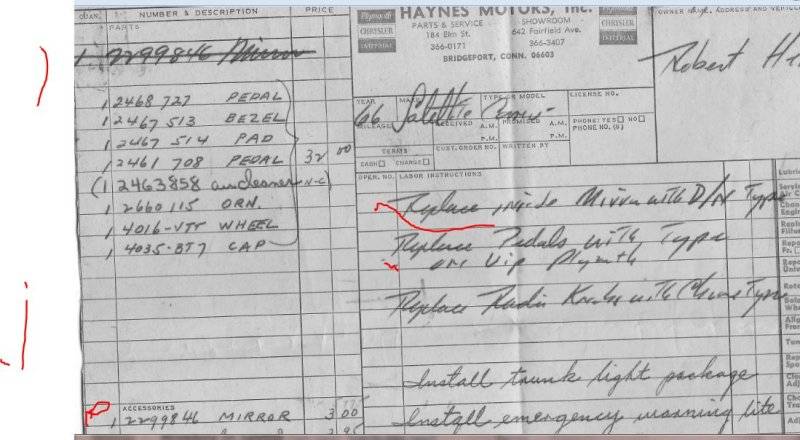 QUAN. NUMBER & DESCRIPTION PRICE
PARTS
1 2299846 Mirror
1 2468 727 PEDAL
1 2467 513 BEZEL
1 2467 514 PAD
1 2461 708 PEDAL 32 00
(1 2463858 N-C
1 2660 115 ORN.
1 4016-VTT WHEEL
1 4035-BT7 CAP
ACCESSORIES
1 2299846 MIRROR 3 00
2 95
Plymouth
CHRYSLER
IMPERIAL
HAYNES MOTORS, Inc.
PARTS & SERVICE SHOWROOM
184 Elm St. 642 Fairfield Ave.
366-0171 366-3407
BRIDGEPORT, CONN. 06603
Plymouth
CHRYSLER
IMPERIAL
OWNER ADDRESS AND
Robert
YEAR MAKE TYPE OR MODEL LICENSE NO.
66 Satellite
MILEAGE RECEIVED A.M. P.M. PROMISED A.M. P.M. PHONE: YES NO
PHONE NO.(S)
TERMS CUST. ORDER NO. WRITTEN BY
CASH CHARGE
OPER. NO. LABOR INSTRUCTIONS
Replace inside Mirror with D/N Type
Replace Pedals with Type
on Vip Plymouth
Replace Radio Knobs with Chrome Type
Install trunk light package
Install emergency warning lite